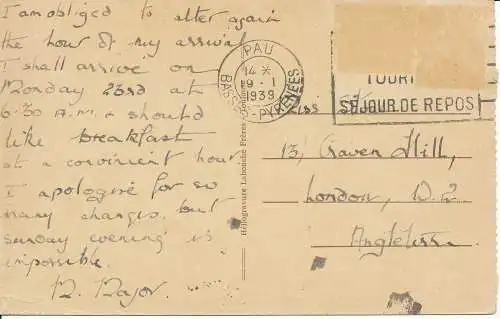 I am obliged to alter again
the hour of my arrival
I shall arrive on
Monday 23rd at
6:30 A.M. & should
like breakfast
at a convinient hour
I apologise for so
many changes, but
sunday evening is
impossible.
M. Major.
Héliogravure Labouche Frères
PAU
14 *
9 - 1
1939
BASSES-PYRENEES
TOURI
SÉJOUR DE REPOS
13, Craven Hill,
London, W.2
Angleterre